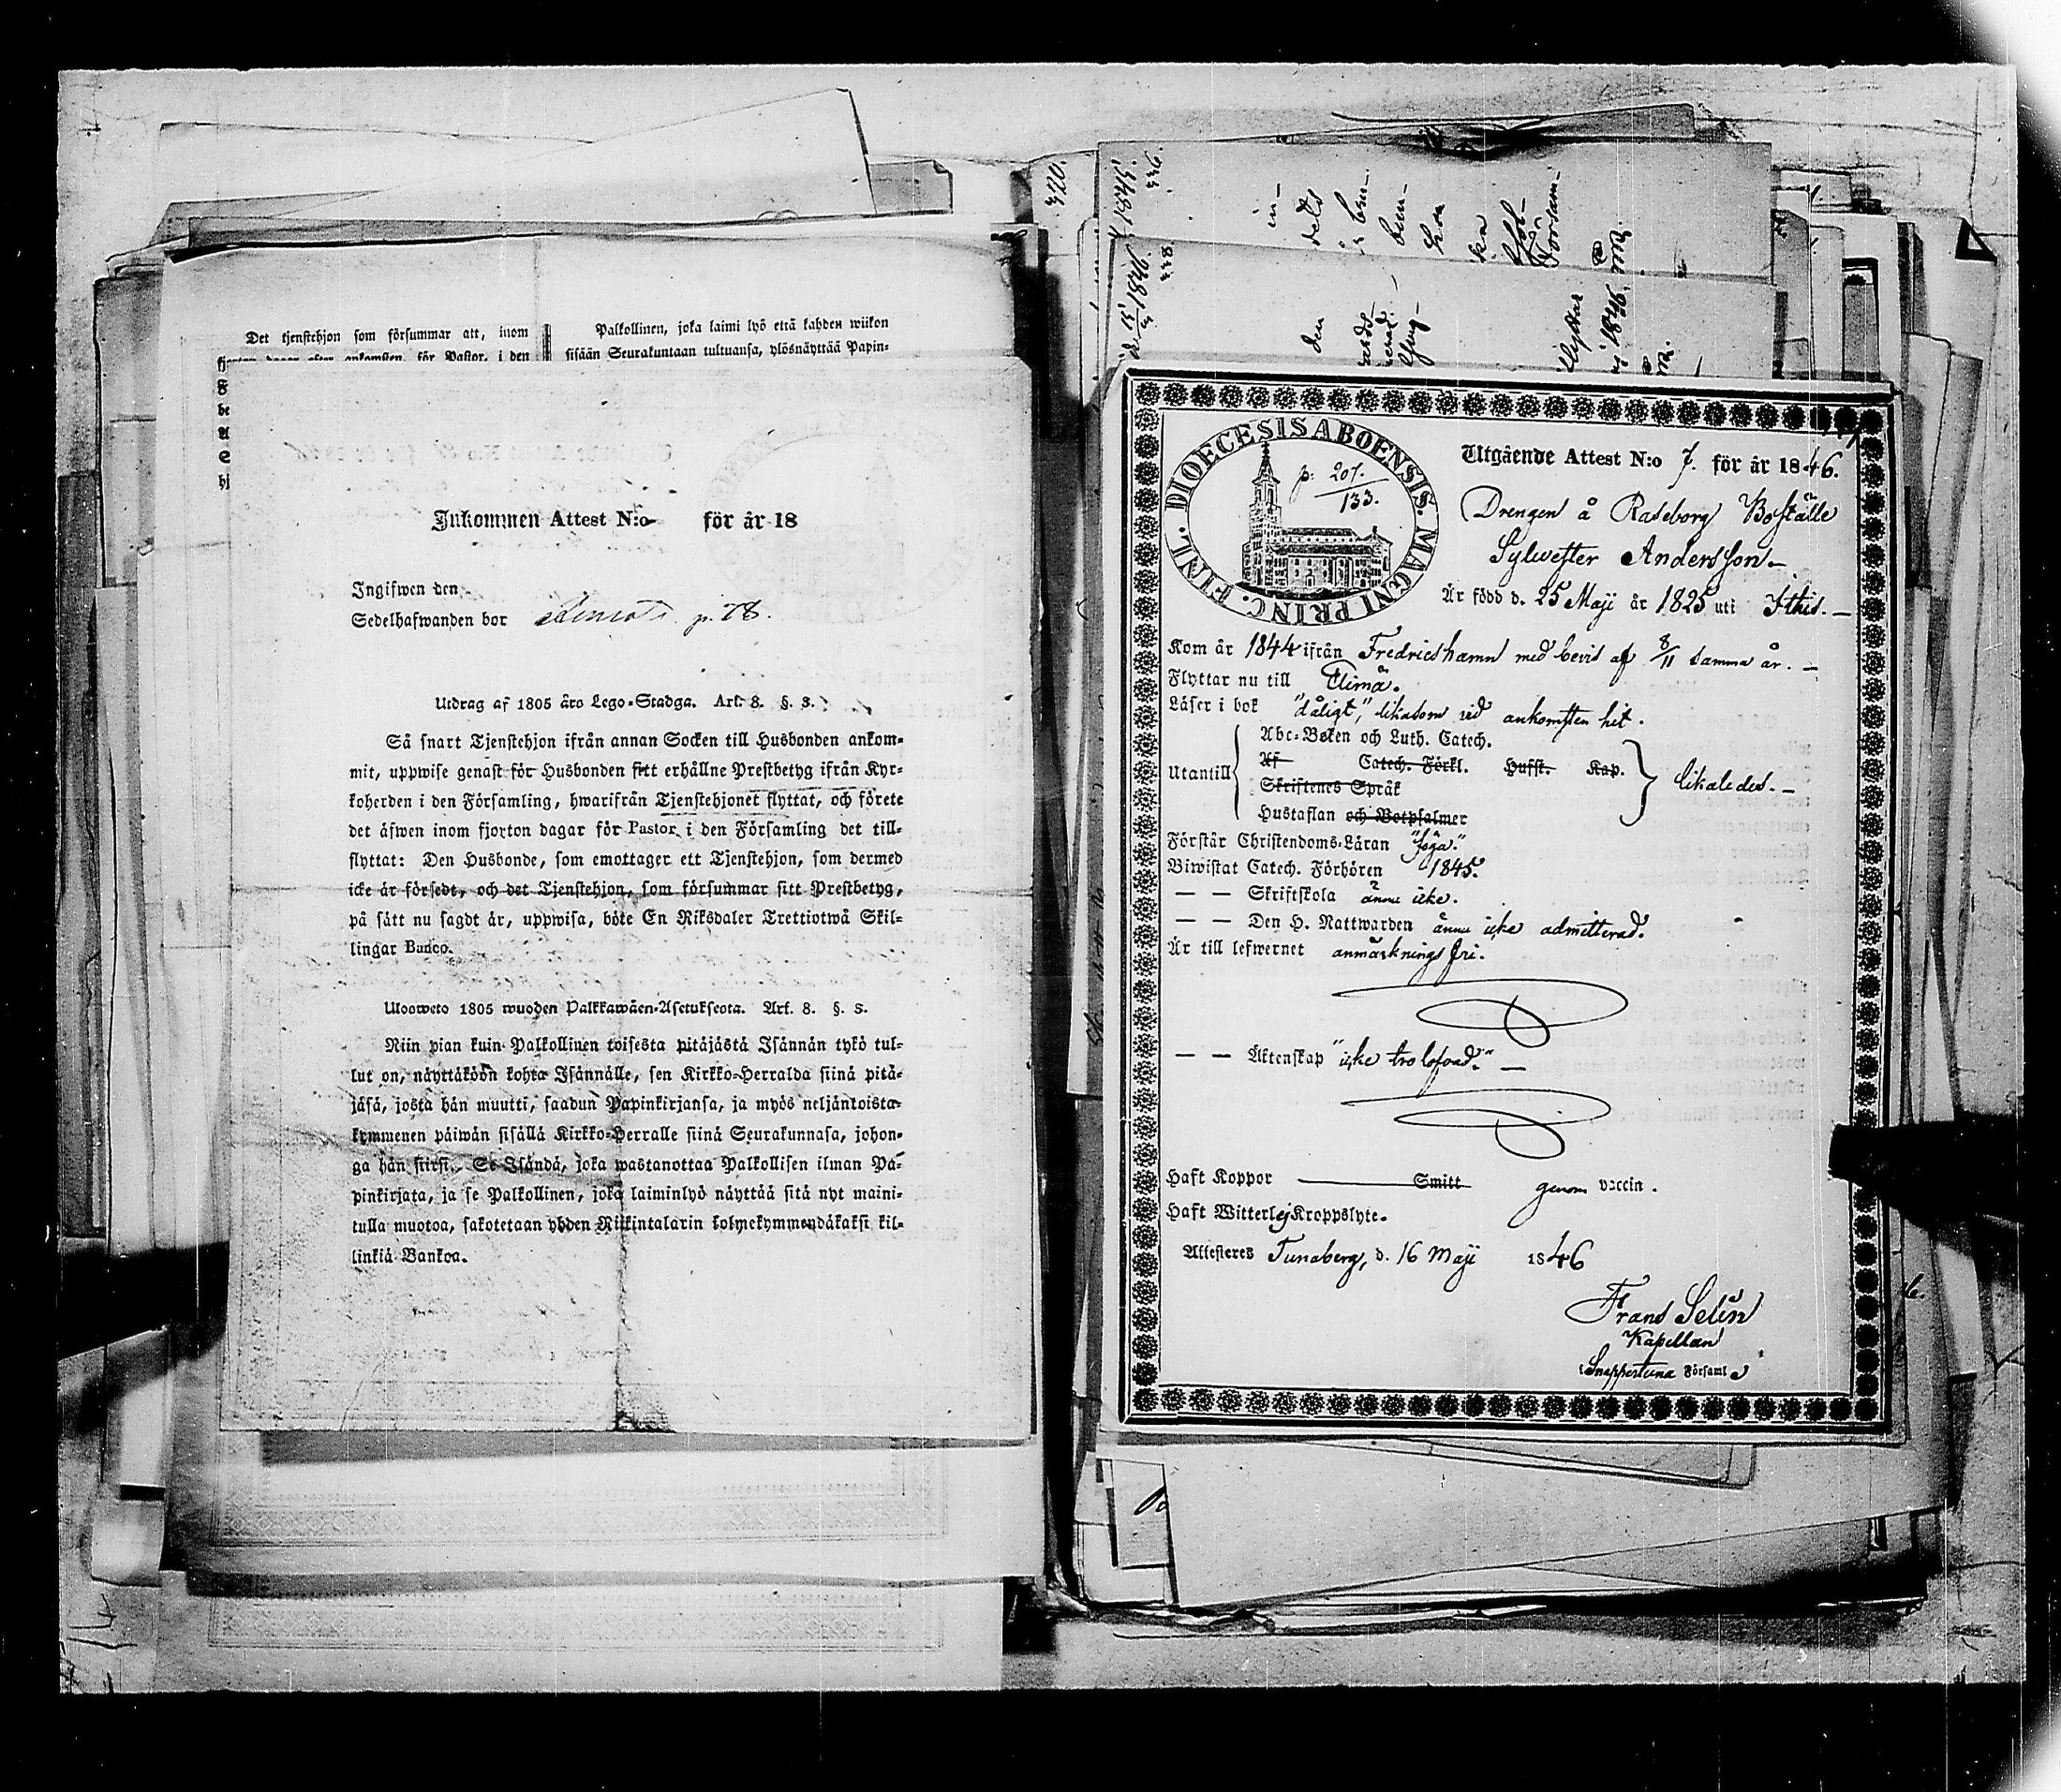 Det tjenstehjon som försummar att, inom
Palkollinen, joka laimi lyö että kahden wiikon
sisään Seurakuntaan tultuansa, ylösnäyttää Papin-
Inkommen Attest N:o för år 18
Ingifwen den
Sedelhafwanden bor p. 78.
Utdrag af 1805 års Lego-Stadga. Art. 8. §. 3.
Så snart Tjenstehjon ifrån annan Socken till Husbonden ankom-
mit, uppwise genast för Husbonden sitt erhållne Prestbetyg ifrån Kyr-
koherden i den Församling, hwarifrån Tjenstehjonet flyttat, och förete
det äfwen inom fjorton dagar för Pastor i den Församling det till-
flyttat: Den Husbonde, som emottager ett Tjenstehjon, som dermed
icke är försedt, och det Tjenstehjon, som försummar sitt Prestbetyg,
på sätt nu sagdt är, uppwisa, böte En Riksdaler Trettiotwå Skil-
lingar Banco.
Ulosweto 1805 wuoden Palkkawäen-Asetuksesta. Art. 8. §. 3.
Niin pian kuin Palkollinen toisesta pitäjästä Isännän tykö tul-
lut on, näyttäköön kohta Isännälle, sen Kirkko-Herralda siinä pitä-
jäsä, josta hän muutti, saadun Papinkirjansa, ja myös neljäntoista-
kymmenen päiwän sisällä Kirkko-Herralle siinä Seurakunnasa, johon-
ga hän siirsi. Se Isändä, joka wastanottaa Palkollisen ilman Pa-
pinkirjata, ja se Palkollinen, joka laiminlyö näyttää sitä nyt maini-
tulla muotoa, sakotetaan yhden Riikintalarin kolmekymmendäkaksi kil-
linkiä Bankoa.
320.
1846.
DIOECESIS ABOENSIS. MAGNI PRINC. FINL.
p. 207.
133.
Utgående Attest N:o 7. för år 1846.
Drengen å Raseborg Boställe
Sylwester Andersson.
Är född d. 25 Maji år 1825 uti Ithis.
Kom år 1844 ifrån Fredricshamn med bevis af 8/11 samma år.
Flyttar nu till Elimä.
Läser i bok "dåligt," likasom vid ankomsten hit.
Abc-Boken och Luth. Catech.
Utantill Af Catech. Förkl. Husst. Kap. likaledes.
Skriftenes Språk
Hustaflan och Botpsalmer
Förstår Christendoms-Läran "föga."
Biwistat Catech. Förhören 1845.
— — Skriftskola ännu icke.
— — Den H. Nattwarden ännu icke admitterad.
Är till lefwernet anmärkningsfri.
— — Äktenskap "icke trolofvad."
Haft Koppor Smitt genom vaccin.
Haft Witterlej Kroppslyte.
Attesteres Tunaberg, d. 16 Maji 1846
Frans Selin
Kapellan
i Snappertuna Församl